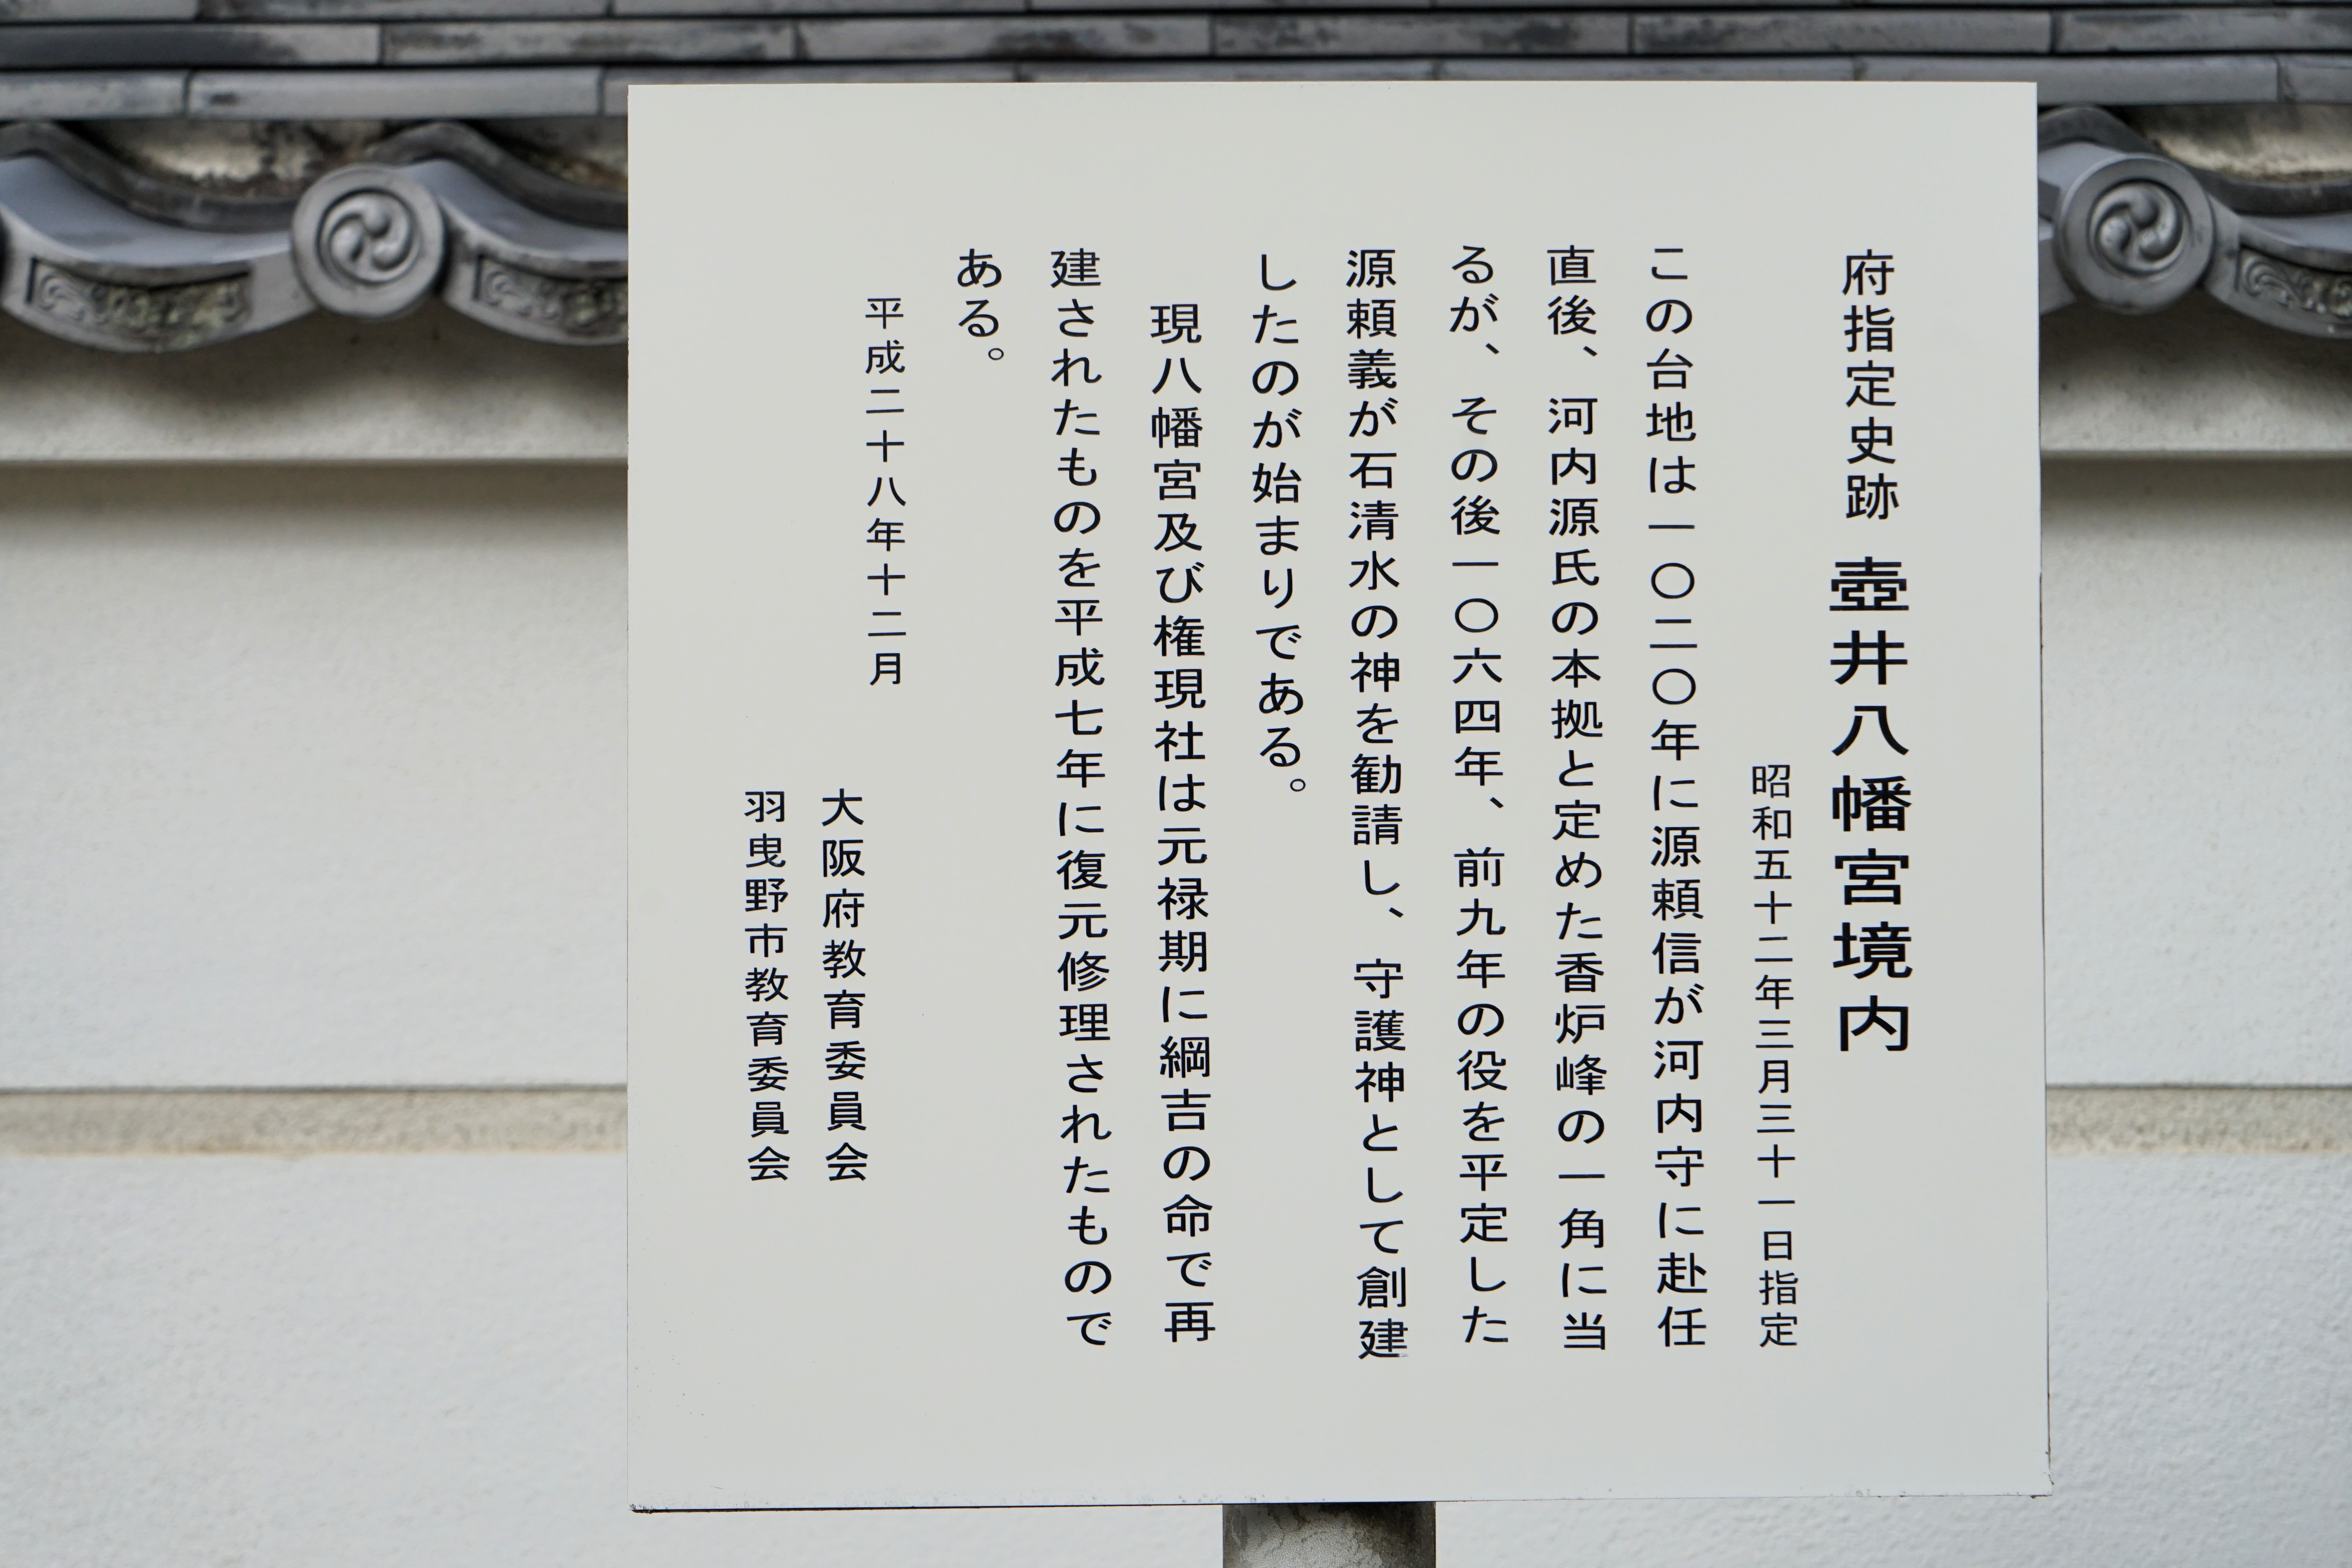 府指定史跡 壺井八幡宮境内
昭和五十二年三月三十一日指定
この台地は一〇二〇年に源頼信が河内守に赴任
直後、河内源氏の本拠と定めた香炉峰の一角に当
るが、その後一〇六四年、前九年の役を平定した
源頼義が石清水の神を勧請し、守護神として創建
したのが始まりである。
現八幡宮及び権現社は元禄期に綱吉の命で再
建されたものを平成七年に復元修理されたもので
ある。
平成二十八年十二月
大阪府教育委員会
羽曳野市教育委員会